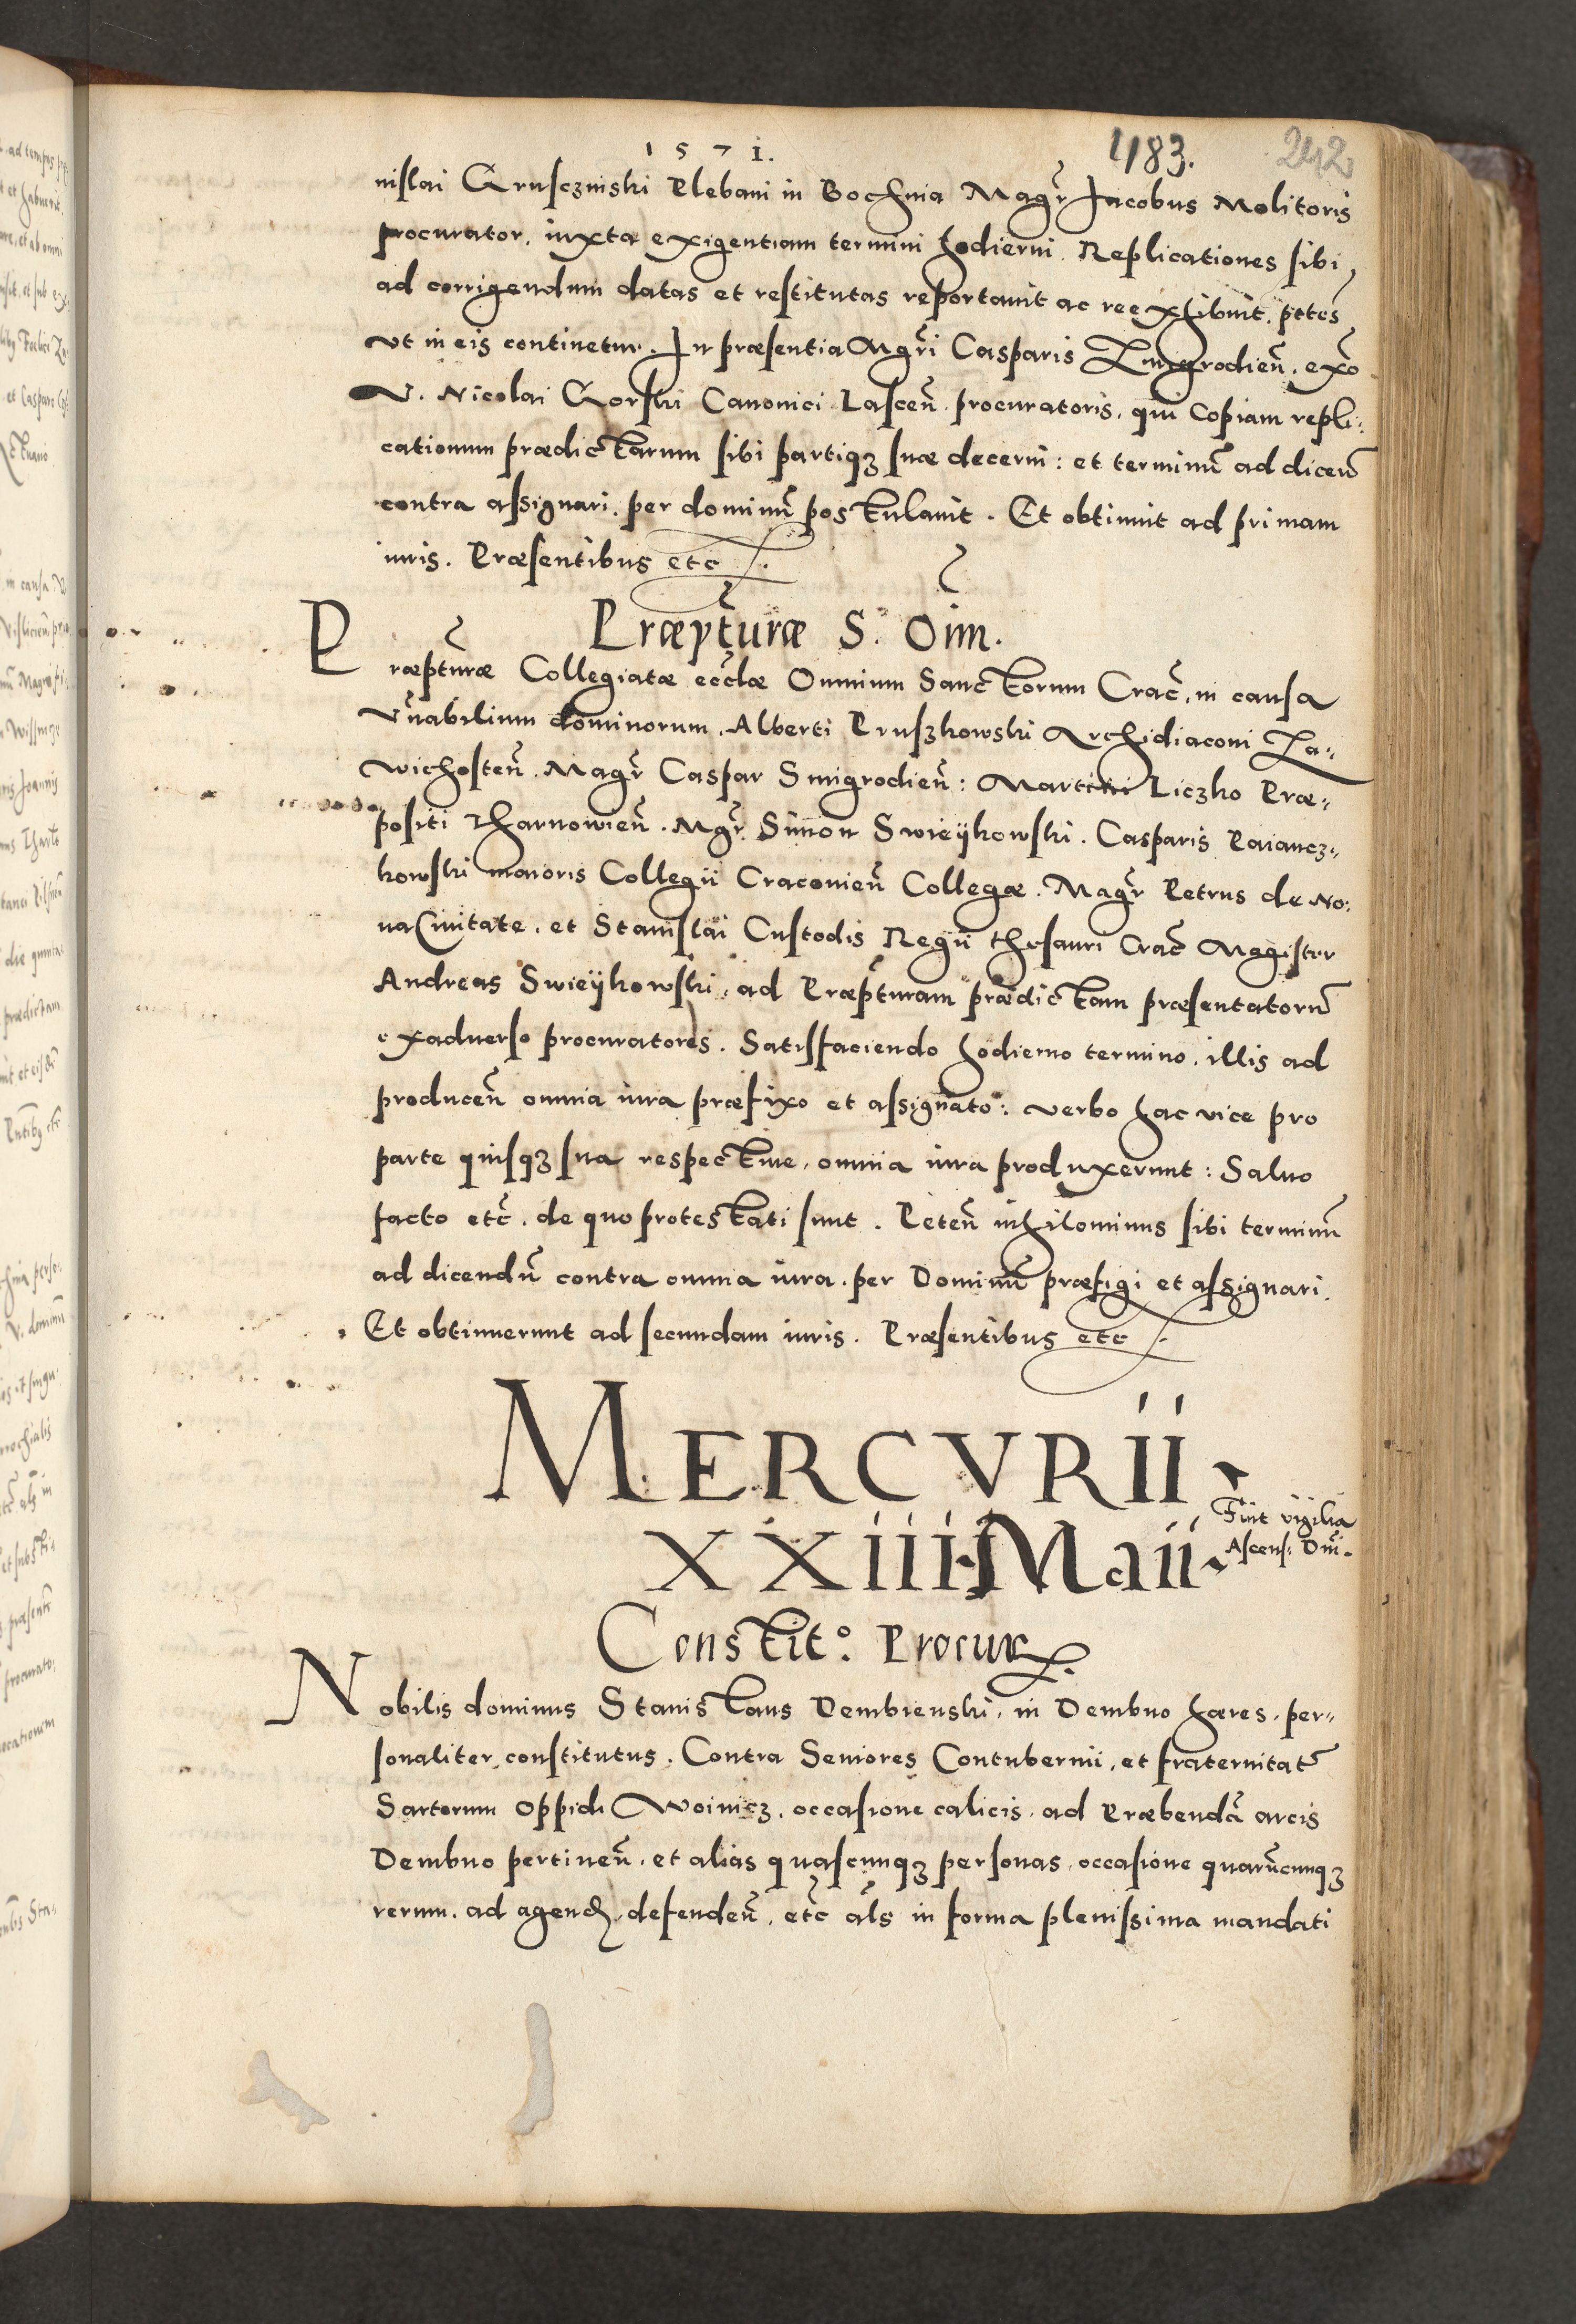 1571.
483.
242
nislai Grusczniski Plebani in Bochnia Magr̃ Jacobus Molitoris
procurator, iuxta exigentiam termini hodierni Replicationes sibi
ad corrigendum datas et restitutas reportauit ac reexhibuit, pττes
vt in eis continetur. In præsentia Mgr̃i Casparis Zmigrodieñ. exo
V. Nicolai Gorski Canonici Lasceñ procuratoris, qui Copiam repli:
cationum prædictarum sibi partiqȝ suæ decerni: et terminũ ad diceñ
contra assignari per dominũ postulauit. Et obtinuit ad primam
iuris. Præsentibus etc
Præpt̃uræ S. Oim̃.
Præpt̃uræ Collegiatæ eccl̃æ Omnium Sanctorum Crac̃, in causa
Vñabilium dominorum, Alberti Pruszkowski Archidiaconi Za-
wichosteñ. Magr̃ Caspar Smigrodieñ: Martini Liczko Præ-
positi Tharnowieñ. Mgr̃ Simon Swieÿkowski. Casparis Paiancz-
kowski maioris Collegii Craconieñ Collegæ. Magr̃ Petrus de No:
ua Ciuitate, et Stanislai Custodis Regii thesauri Crac̃ Magister
Andreas Swieÿkowski, ad Præpt̃uram prædictam præsentatorũ
exaduerso procuratores. Satisfaciendo hodierno termino, illis ad
produceñ omnia iura præfixo et assignato: verbo hac vice pro
parte quisqȝ sua respectiue, omnia iura produxerunt: Saluo
facto etc̃. de quo protestati sunt. Peteñ nihilominus sibi terminũ
ad dicendũ contra omnia iura per Dominũ præfigi et assignari.
Et obtinuerunt ad secundam iuris. Præsentibus etc
MERCVRii
XXiii Maii
Fuit vigilia
Ascens: Dñi.
Constit°. Procur
Nobilis dominus Stanislaus Dembienski, in Dembno hæres, per-
sonaliter constitutus. Contra Seniores Contubernii, et fraternitat̃
Sartorum Oppidi Woinicz, occasione calicis, ad Præbendã arcis
Dembno pertineñ, et alias quascunqȝ personas, occasione quarũcunqȝ
rerum. ad agend, defendeñ, etc̃ al̃s in forma plenissima mandati